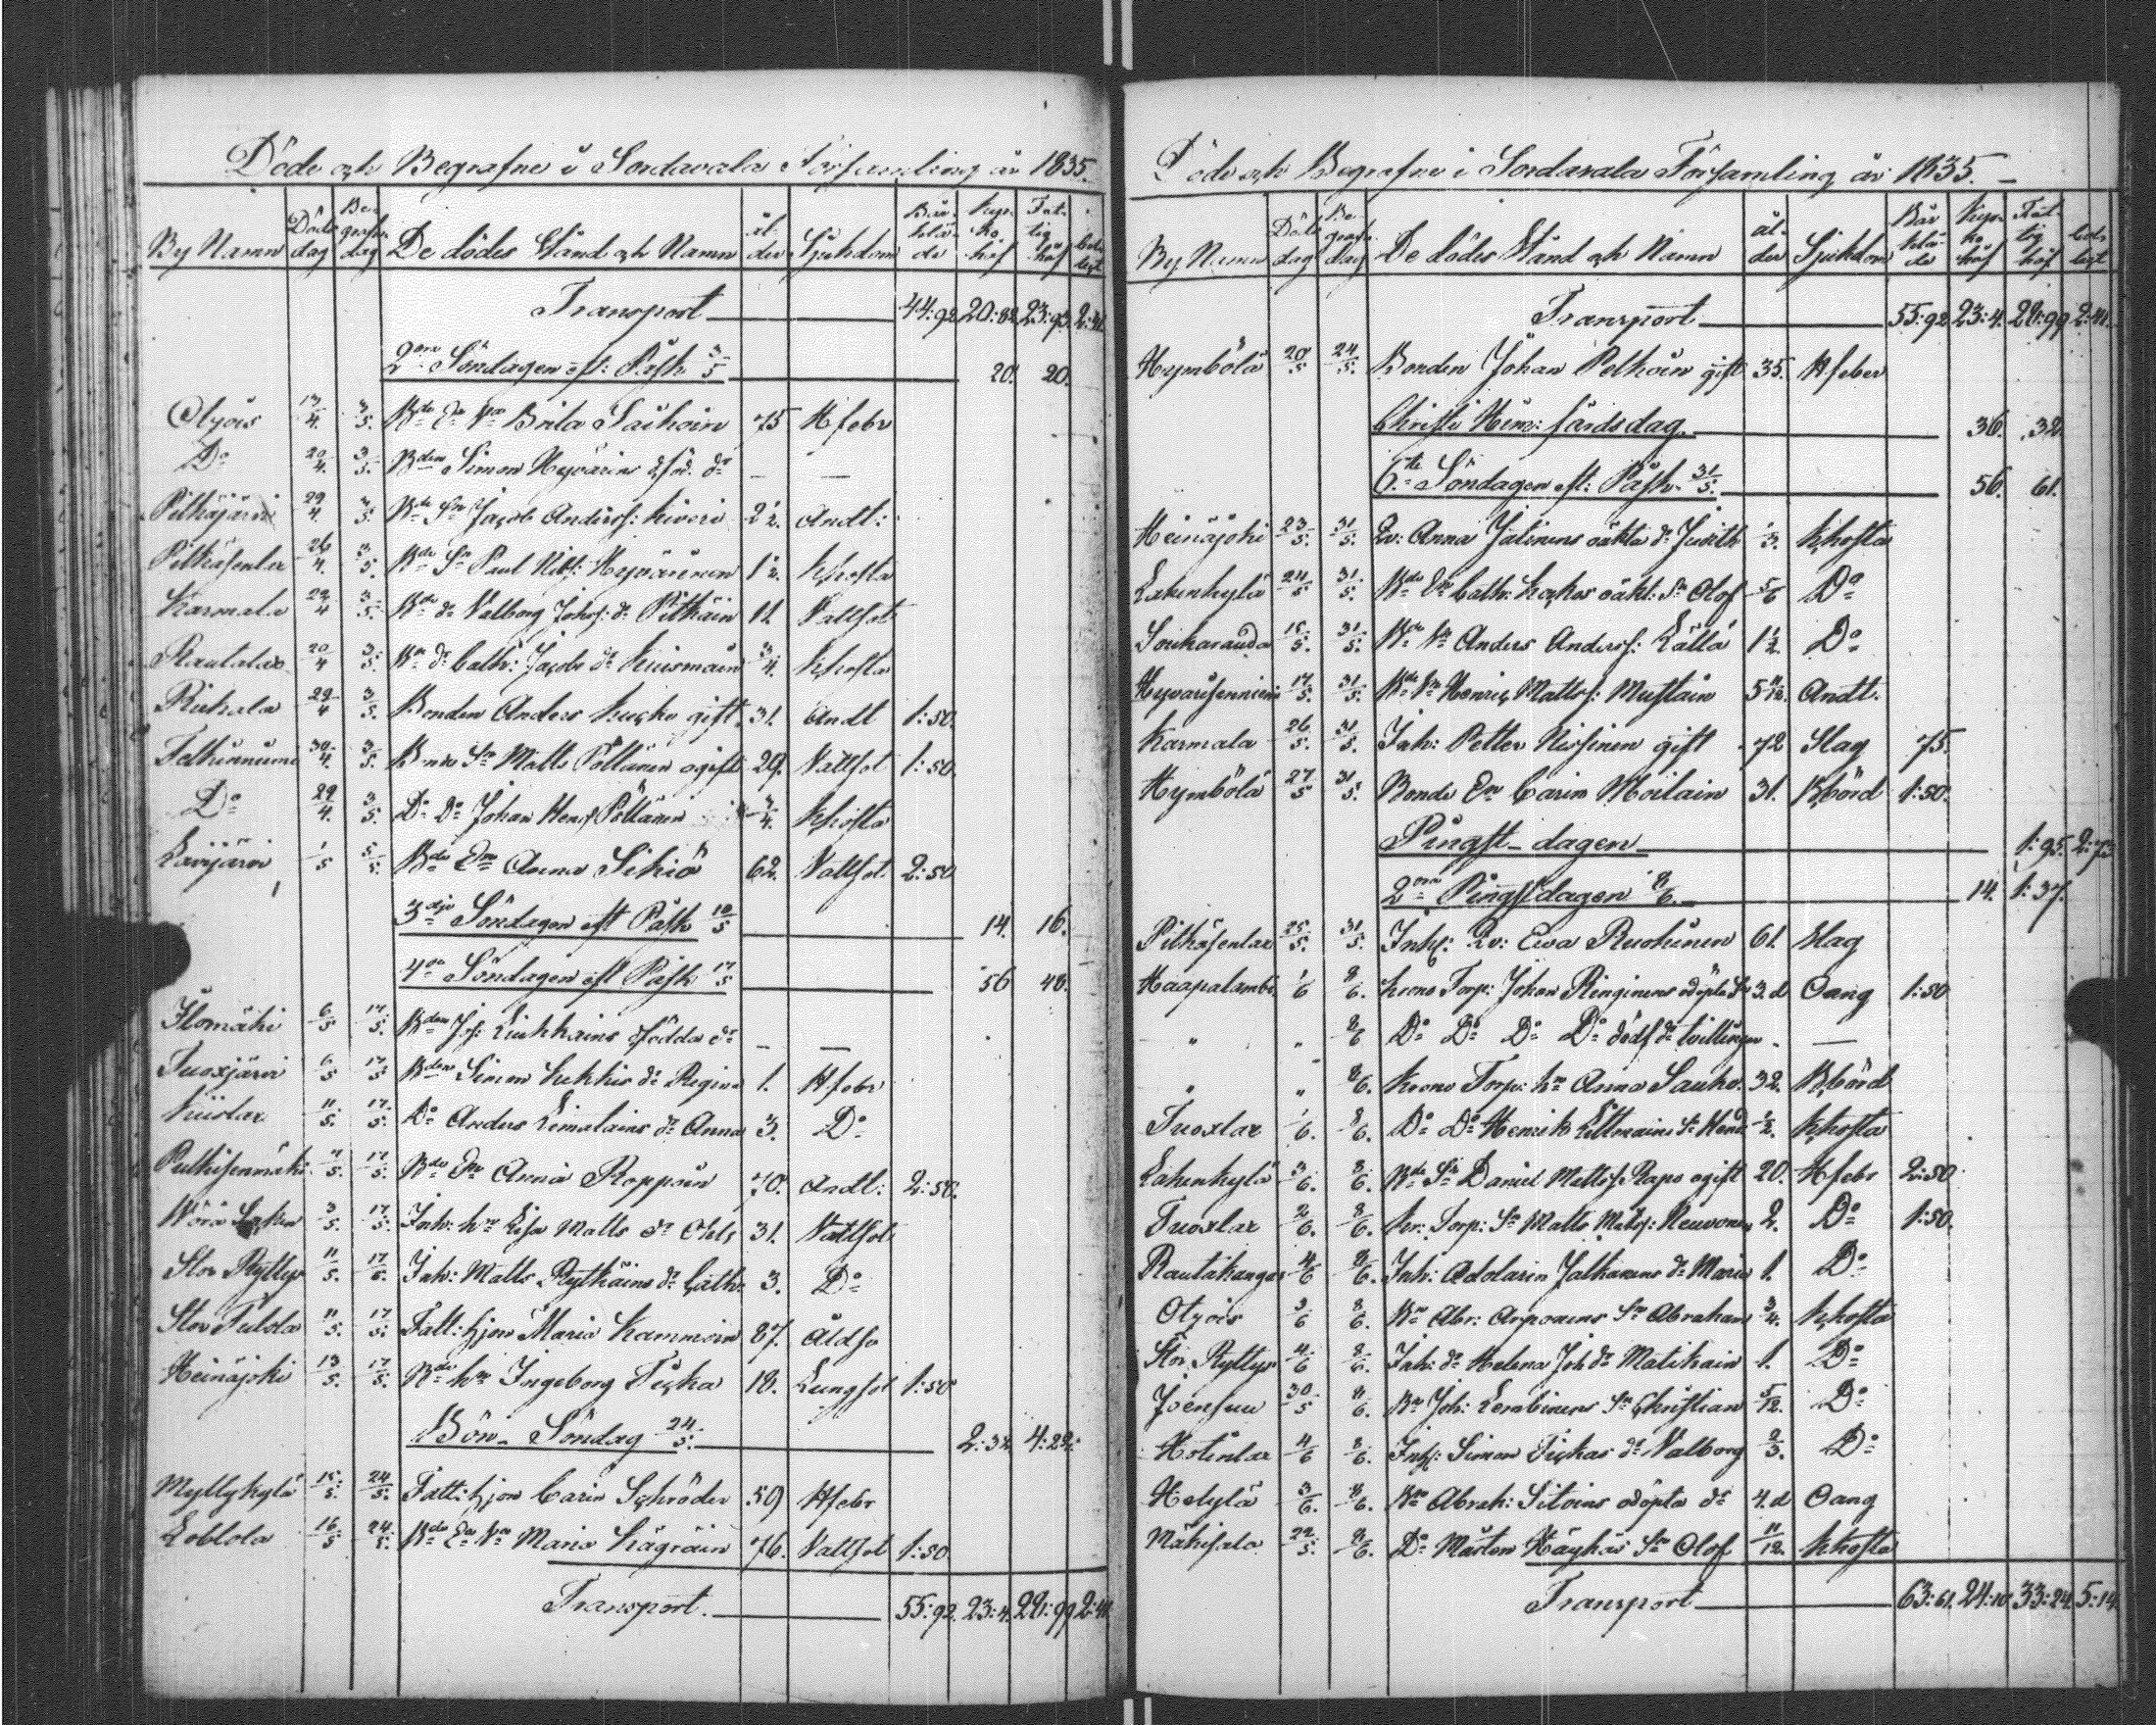 Döde och Begrafne i Sordavala Församling år 1835.
By Namn Döds dag Be- grafn. dag De dödes Stånd och Namn ål- der Sjukdom Bår- klä- de Kyr- ko håf Fat- tig håf
Transport 44:92 20:82 23:93 2:41
2dra Söndagen eft: Påsk 3/5 20. 20.
Otsois 13/4. 3/5. Bde Ea Brita Saikoin 75 Hfebr
Do 20/4. 3/5. Bdens Simon Hyvärins dföd. dr — —
Pitkäjärvi 29/4. 3/5. Bde Sn Jacob Anderss: Kiveri 2½. Andt:
Pitkäsenlax 26/4. 3/5. Bde Sn Paul Nils: Hyvärinen 1½. Khosta
Karmala 29/4 3/5. Bde dr Valborg Johss: dr Pitkäin 11. Vattsot
Rautalax 20/4 3/5. Bn dr Cath: Jacobs dr Kuismain 3/4. Khosta
Riekala 29/4 3/5. Bonden Anders Kucko gift 31. Andt 1:50.
30/4. 3/5. Bonde Sn Matts Pöllänen ogift 29. Vattsot 1:50.
Do 29/4. 3/5. Do Do Johan Henrss Pöllänen 3/4. Khosta
Leppäjärvi 1/5 5/5. Bde Em Anna Sikiö 62. Vattsot. 2:50
3dje Söndagen eft Påsk 10/5 14. 16.
4de Söndagen eft Påsk 17/5 56 48.
Ilomäki 6/5 17/5. Bdens Jos: Liukkains dfödda dr — —
Tuoxjärvi 6/5 17/5 Bdens Simon Kukkis dr Regina 1. Hfebr
Kiislax 11/5. 17/5. Do Anders Limatains dr Anna 3. Do
11/5. 17/5. Bde Em Anna Roppoin 70. Andt: 2:50.
3/5. 17/5. Inh: hu Lisa Matts dr 31. Vattsot
Stor Ryttys 11/5. 17/5. Inh: Matts Rytkäins dr Cath: 3. Do
Stor Tulola 11/5. 17/5. Fatt: hjon Maria Kammoin 87. Åldso
Heinäjoki 13/5. 17/5. Bde hu Ingeborg Ticka 18. Lungsot 1:50
Bön- Söndag 24/5. 2:32 4:22.
Myllykylä 15/5. 24/5. Fatt: hjon Carin Schröder 59 Hfebr
16/5 24/5. Bde Ea Maria Kägräin 76. Vattsot 1:50
Transport. 55:92. 23:4. 28:99 2:41
Döde och Begrafne i Sordavala Församling år 1835.
By Namn Döds dag Be- grafn. dag De dödes Stånd och Namn ål- der Sjukdom Bår klä- de Kyr- ko håf Fat- tig håf
Transport 55:92 23:4. 28:99 2:41.
Hymbölä 20/5 24/5. Bonden Johan Pelkoin gift 35. Hfeber
Christi Him: färdsdag. 36. 32.
6te Söndagen eft: Påsk. 31/5. 56. 61.
Heinäjoki 23/5. 31/5. Qv: Anna Jalinens oäkta dr Judith 1/3. Khosta
Lahenkylä 24/5 31/5. Bde Em Cath: Kackos oäkt: Sn Olof 5/6 Do
Soukaranda 15/5. 31/5. Bde Sn Anders Anderss: Lällä 1½ Do
17/5. 31/5. Bde Sn Henric Mattss: Mustoin 5 11/12. Andt.
Karmala 26/5. 31/5. Inh: Petter Nissinen gift 72 Slag 75.
Hymbölä 27/5 31/5. Bonde Em Carin Moilain 31. Bbörd 1:50.
Pingst-dagen 1:95. 2:73
2dra Pingstdagen 8/6. 14. 1:37.
Pitkäsenlax 25/5. 31/5. Inh: Qv: Ewa Ruotsinen 61. Slag
Haapalambi 1/6 8/6. Krono Torp: Johan Ringinens odöpta Sn 3.d Oang 1:50
" " 8/6 Do Do Do Do dödf dr tvillingen — —
" " 8/6. Krono Torp: hu Anna Sauko 32. Bbörd
Tuoxlax 1/6. 8/6. Do Do Henrik Kiltmains Sn Hend 1/2. Khosta
Lahenkylä 3/6. 8/6. Bde Sn Daniel Mattss Rapo ogift 20. Hfebr 2:50
Tuoxlax 2/6. 8/6. Kr: Torp: Sn Matts Matss: Reuvonen 2. Do 1:50.
Rautakangas 4/6 8/6. Inh: Adolarin Jalkanens dr Maria 1. Do
Otsois 3/6 8/6. Bn Abr: Arponens Sn Abraham 3/4. Khosta
Stor Ryttys 4/6 8/6. Inh: dr Helena Joh dr Matikain 1. Do
Joensuu 30/5 8/6. Bn Joh: Lembinens Sn Christian 5/12. Do
Hotinlax 4/6 8/6. Inh: Simon Tickas dr Valborg 2/3. Do
Helylä 3/6. 8/6. Bn Abrah: Sitoins odöpta dr 4.d Oang
Mäkisalo 22/5. 8/6. Do Mårten Häyhäs Sn Olof 11/12. Khosta
Transport 63:61. 24:10 33:24. 5:14